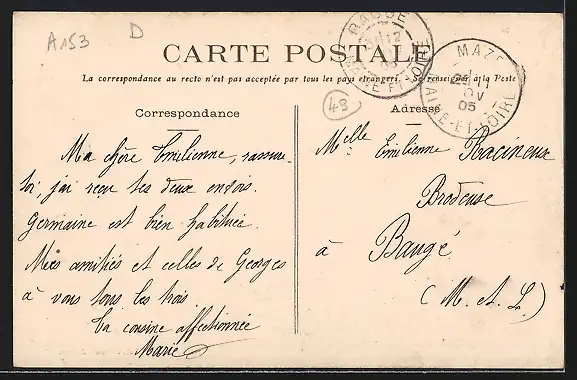 A153 D
CARTE POSTALE
La correspondance au recto n'est pas acceptée par tous les pays étrangers. - Se renseigner à la Poste
48
MAZÉ
11
05
MAINE-ET-LOIRE
Correspondance
Ma chère Emilienne, rassure-
toi, j'ai reçu tes deux envois.
Germaine est bien habituée.
Mes amitiés et celles de Georges
à vous tous les trois
ta cousine affectionnée
Marie
Adresse
Melle Emilienne Racineux
Brodeuse
à Baugé
(M. et L.)